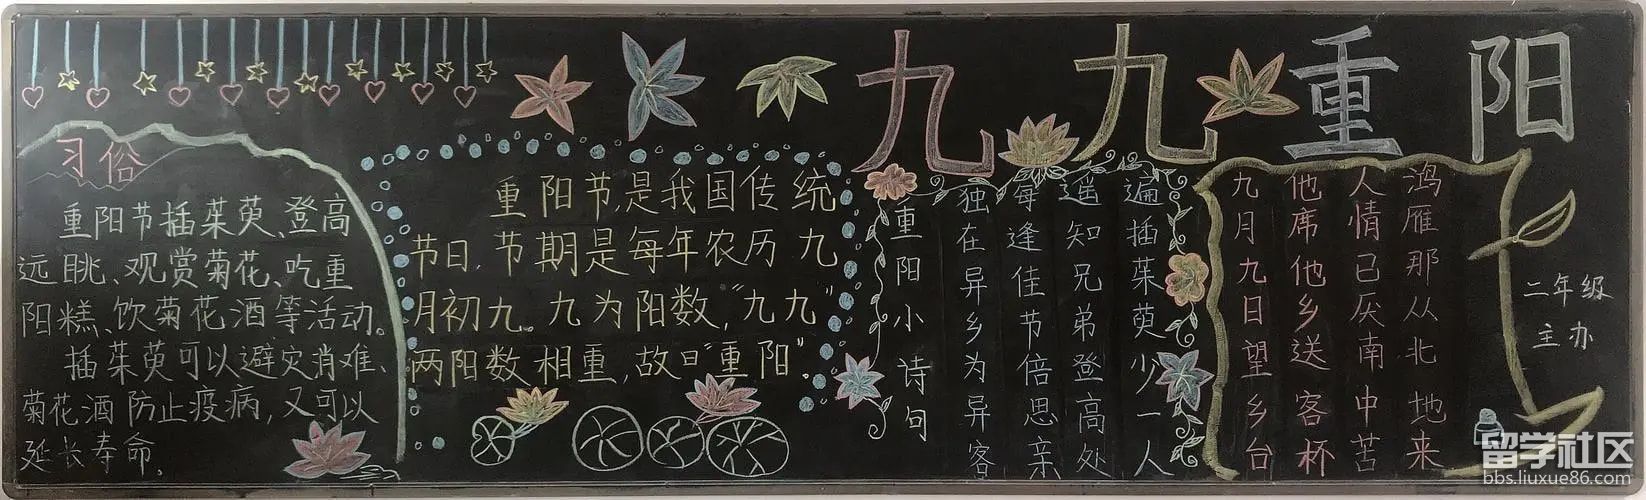 九九重阳
习俗
重阳节插茱萸、登高
远眺、观赏菊花、吃重
阳糕、饮菊花酒等活动。
插茱萸可以避灾消难、
菊花酒防止疫病，又可以
延长寿命。
重阳节，是我国传统
节日，节期是每年农历九
月初九。九为阳数，“九九”
两阳数相重，故曰“重阳”。
重阳小诗句
独在异乡为异客
每逢佳节倍思亲
遥知兄弟登高处
遍插茱萸少一人
九月九日望乡台
他席他乡送客杯
人情已厌南中苦
鸿雁那从北地来
二年级
主办
留学社区
bbs.liuxue86.com